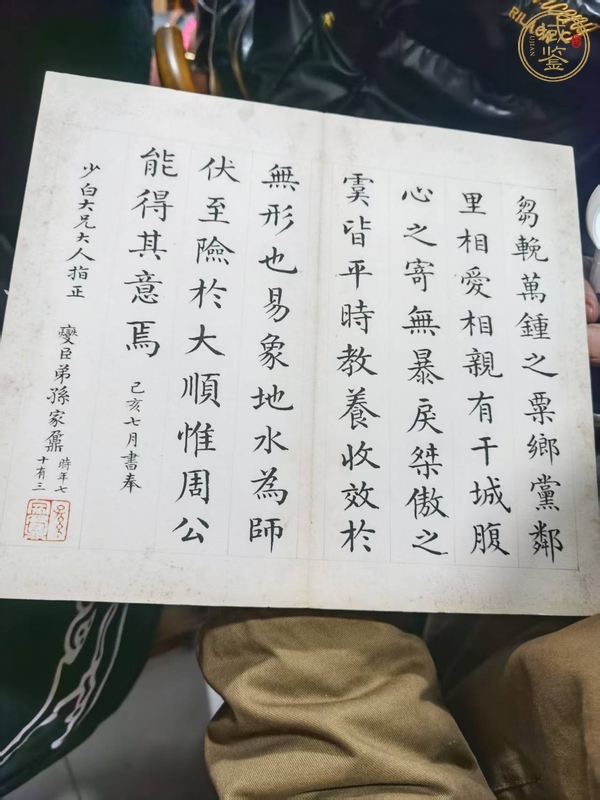 芻輓萬鍾之粟鄉黨鄰
里相愛相親有干城腹
心之寄無暴戾桀傲之
虞皆平時教養收效於
無形也易象地水為師
伏至險於大順惟周公
能得其意焉
己亥七月書奉
少白大兄大人指正
燮臣弟孫家鼐
時年七
十有三
臧鑒